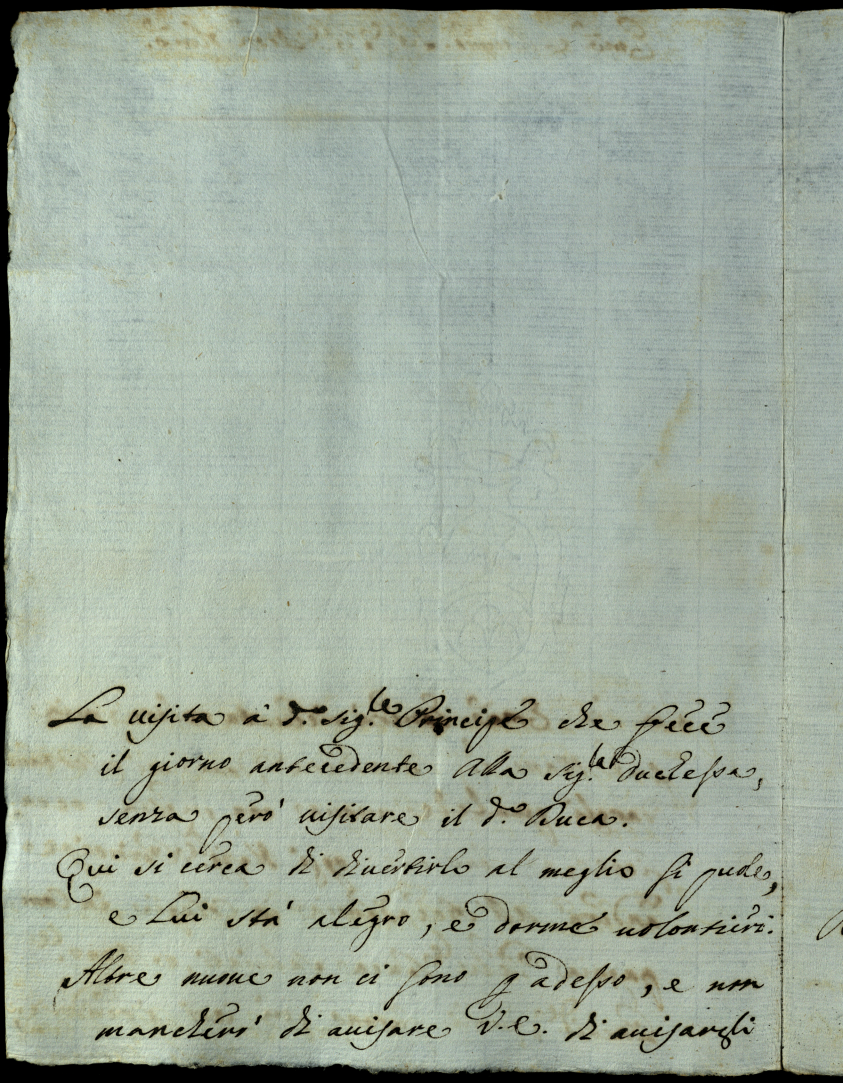 La uisita à d.º Sig.re Principe che fece
il giorno antecedente alla Sig.ra Duchessa,
senza però uisitare il d.º Duca.
Qui si cerca di diuertirlo al meglio si puole,
e Lui stà alegro, e dorme uolontieri.
Altre nuoue non ci sono p adesso, e non
mancherò di auisare V.E. di auisargli